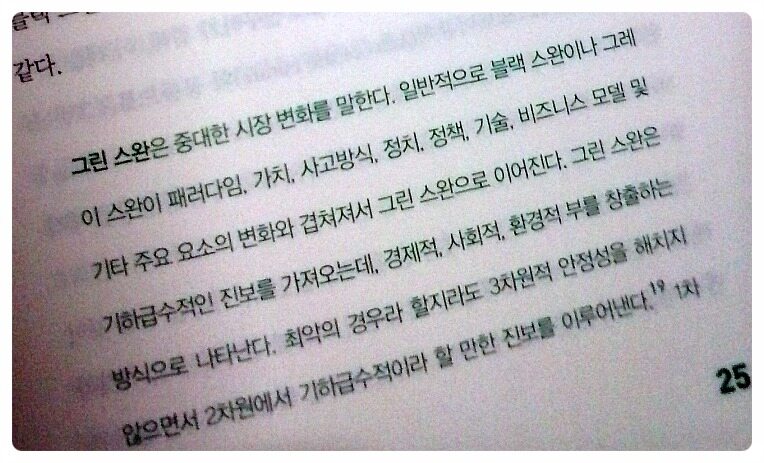 같다.
그린 스완은 중대한 시장 변화를 말한다. 일반적으로 블랙 스완이나 그레
이 스완이 패러다임, 가치, 사고방식, 정치, 정책, 기술, 비즈니스 모델 및
기타 주요 요소의 변화와 겹쳐져서 그린 스완으로 이어진다. 그린 스완은
기하급수적인 진보를 가져오는데, 경제적, 사회적, 환경적 부를 창출하는
방식으로 나타난다. 최악의 경우라 할지라도 3차원적 안정성을 해치지
않으면서 2차원에서 기하급수적이라 할 만한 진보를 이루어낸다.19 1차
25